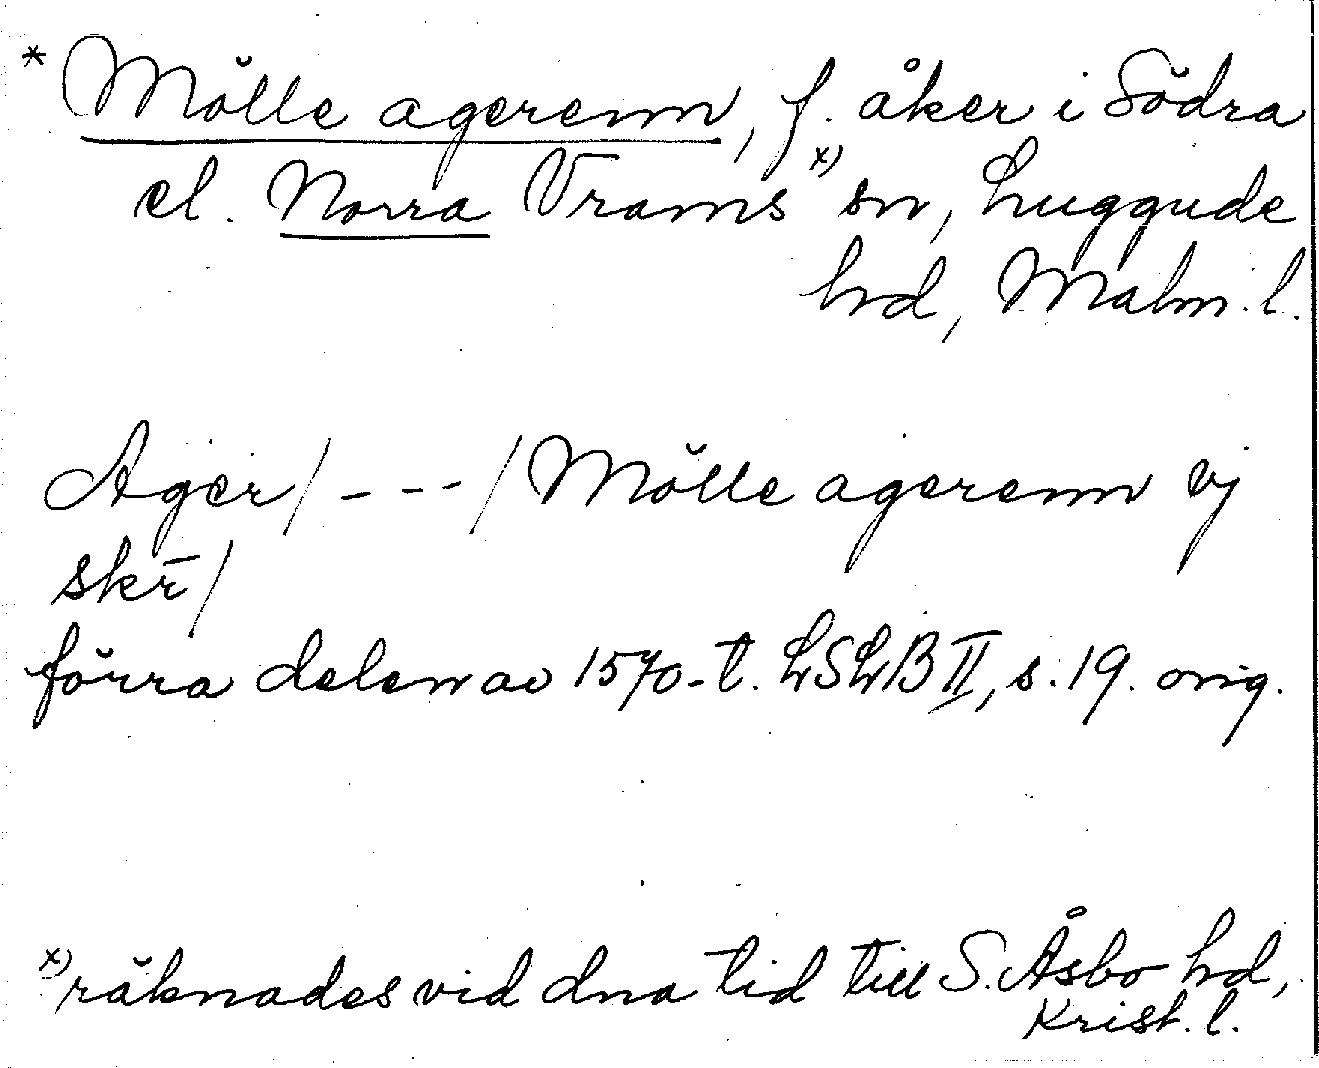 * Mölle agerenn, f. åker i Södra
el. Norra Vrams x) sn, Luggude
hd, Malm. l.
Ager/ - - - / Mölle agerenn vj
skr̄/
förra delen av 1570-t. LSLB II, s. 19. orig.
x) räknades vid dna tid till S. Åsbo hd,
Krist. l.